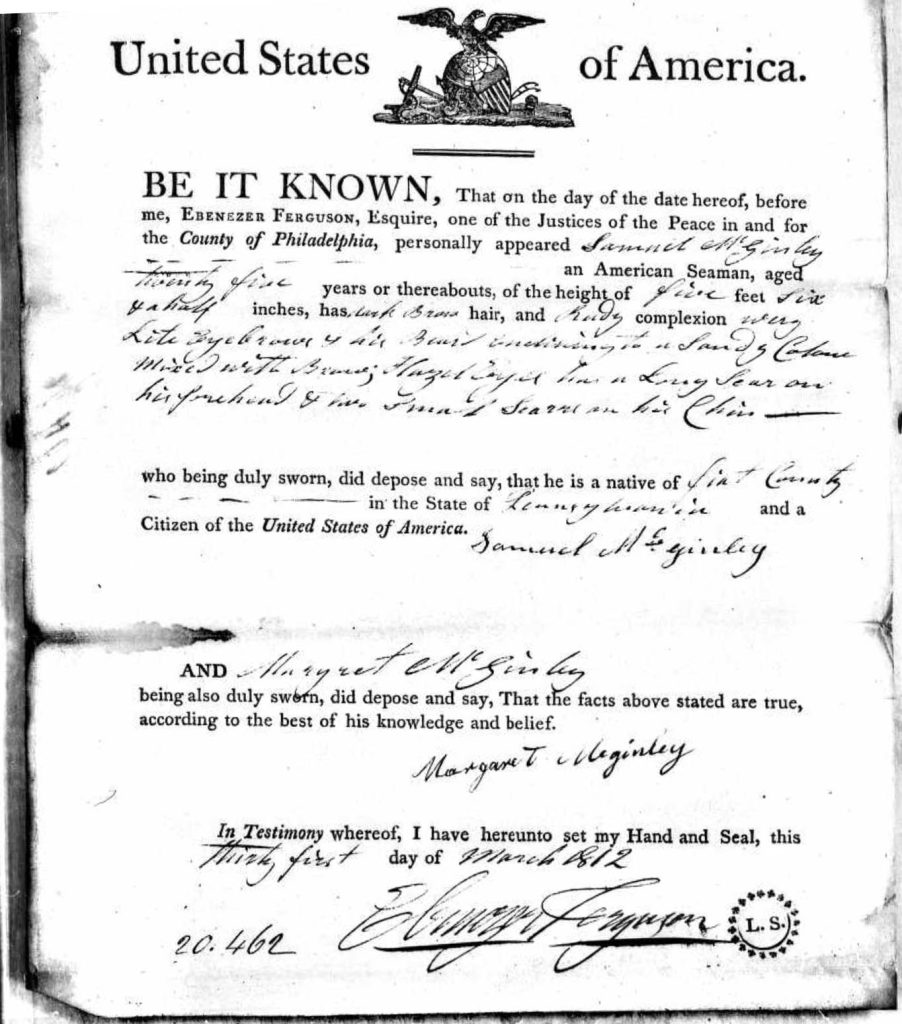 United States of America.
BE IT KNOWN, That on the day of the date hereof, before
me, EBENEZER FERGUSON, Esquire, one of the Justices of the Peace in and for
the County of Philadelphia, personally appeared Samuel McGinley
an American Seaman, aged
twenty five years or thereabouts, of the height of five feet six
& a half inches, has dark Brown hair, and Rudy complexion very
Lite Eyebrows & his Beard inclining to a Sandy Colour
Mixed with Brown; Hazel Eyes has a Long Scar on
his forehead & two Small Scarrs on his Chin
who being duly sworn, did depose and say, that he is a native of County
in the State of Pennsylvania and a
Citizen of the United States of America.
Samuel McGinley
AND Margret McGinley
being also duly sworn, did depose and say, That the facts above stated are true,
according to the best of his knowledge and belief.
Margaret Mcginley
In Testimony whereof, I have hereunto set my Hand and Seal, this
thirty first day of March 1812
Ebenezer Ferguson L. S.
20.462